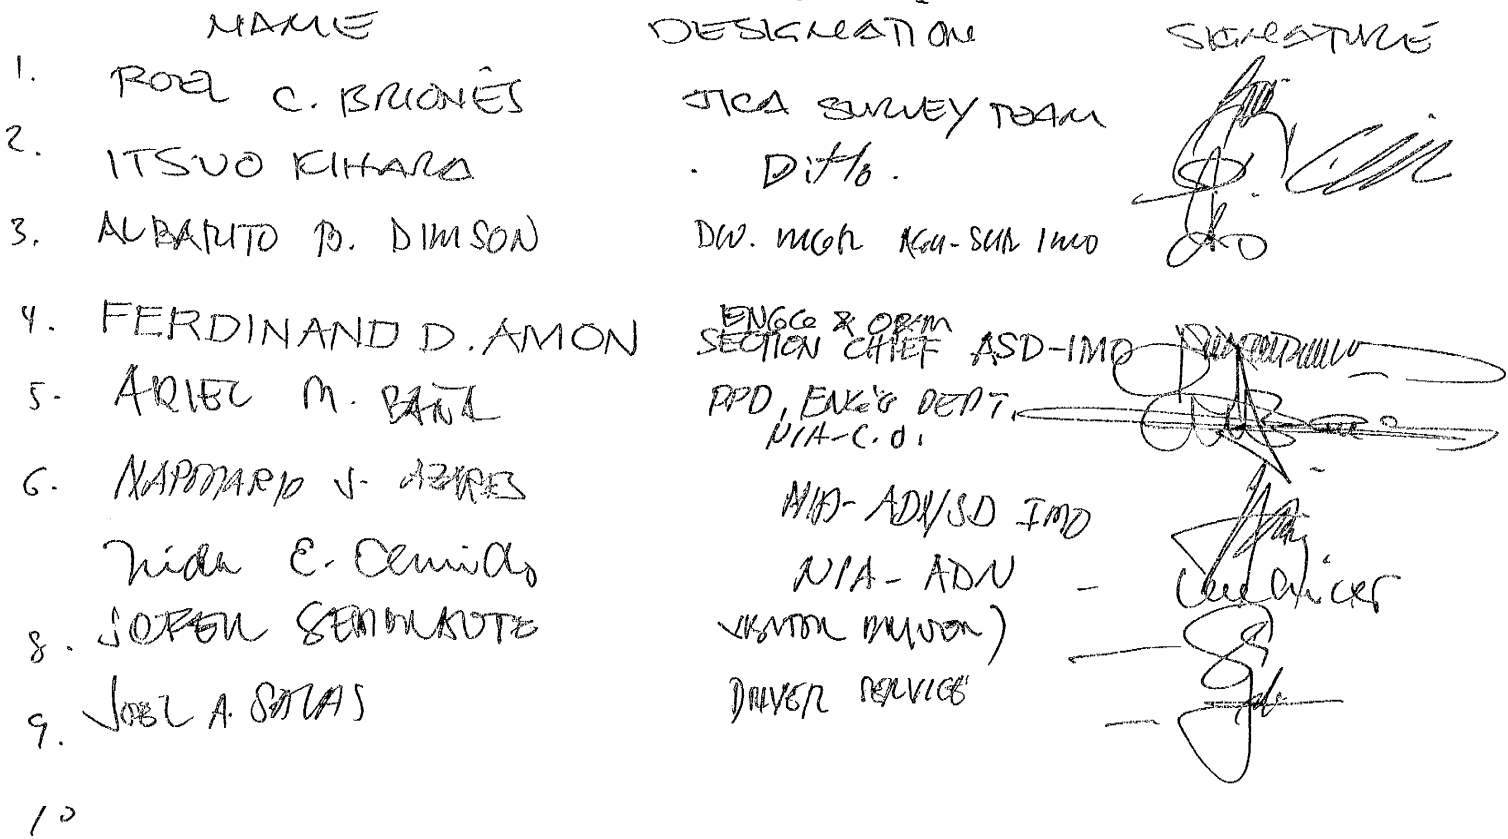 NAME DESIGNATION SIGNATURE
1. ROEL C. BRIONES JICA SURVEY TEAM
2. ITSUO KIHARA . Ditto.
3. ALBARITO B. DIMSON DIV. MGR AGU-SUR IMO
4. FERDINAND D. AMON ENGG & OP&M
SECTION CHIEF ASD-IMO
5. ARIEL M. BAÑA PPD, ENG'G DEPT.
NIA-C.O.
6. V. NIA-ADN/SD IMO
Nida E. NIA-ADN -
8. VISITOR DRIVER)
9. JOEL A. SALAS DRIVER SERVICE
10